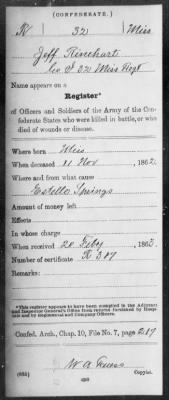 (CONFEDERATE.)
R 32 Miss
Jeff Rinehart
Co. I 32 Miss Regt
Name appears on a
Register*
of Officers and Soldiers of the Army of the Confederate States who were killed in battle, or who died of wounds or disease.
Where born Miss
When deceased 11 Nov, 1862
Where and from what cause
Estello Springs
Amount of money left
Effects
In whose charge
When received 20 Feby, 1863.
Number of certificate R 307
Remarks:
*This register appears to have been compiled in the Adjutant and Inspector General's Office from returns furnished by Hospitals and by Regimental and Company Officers.
Confed. Arch., Chap. 10, File No. 7, page 217
W A
Copyist.